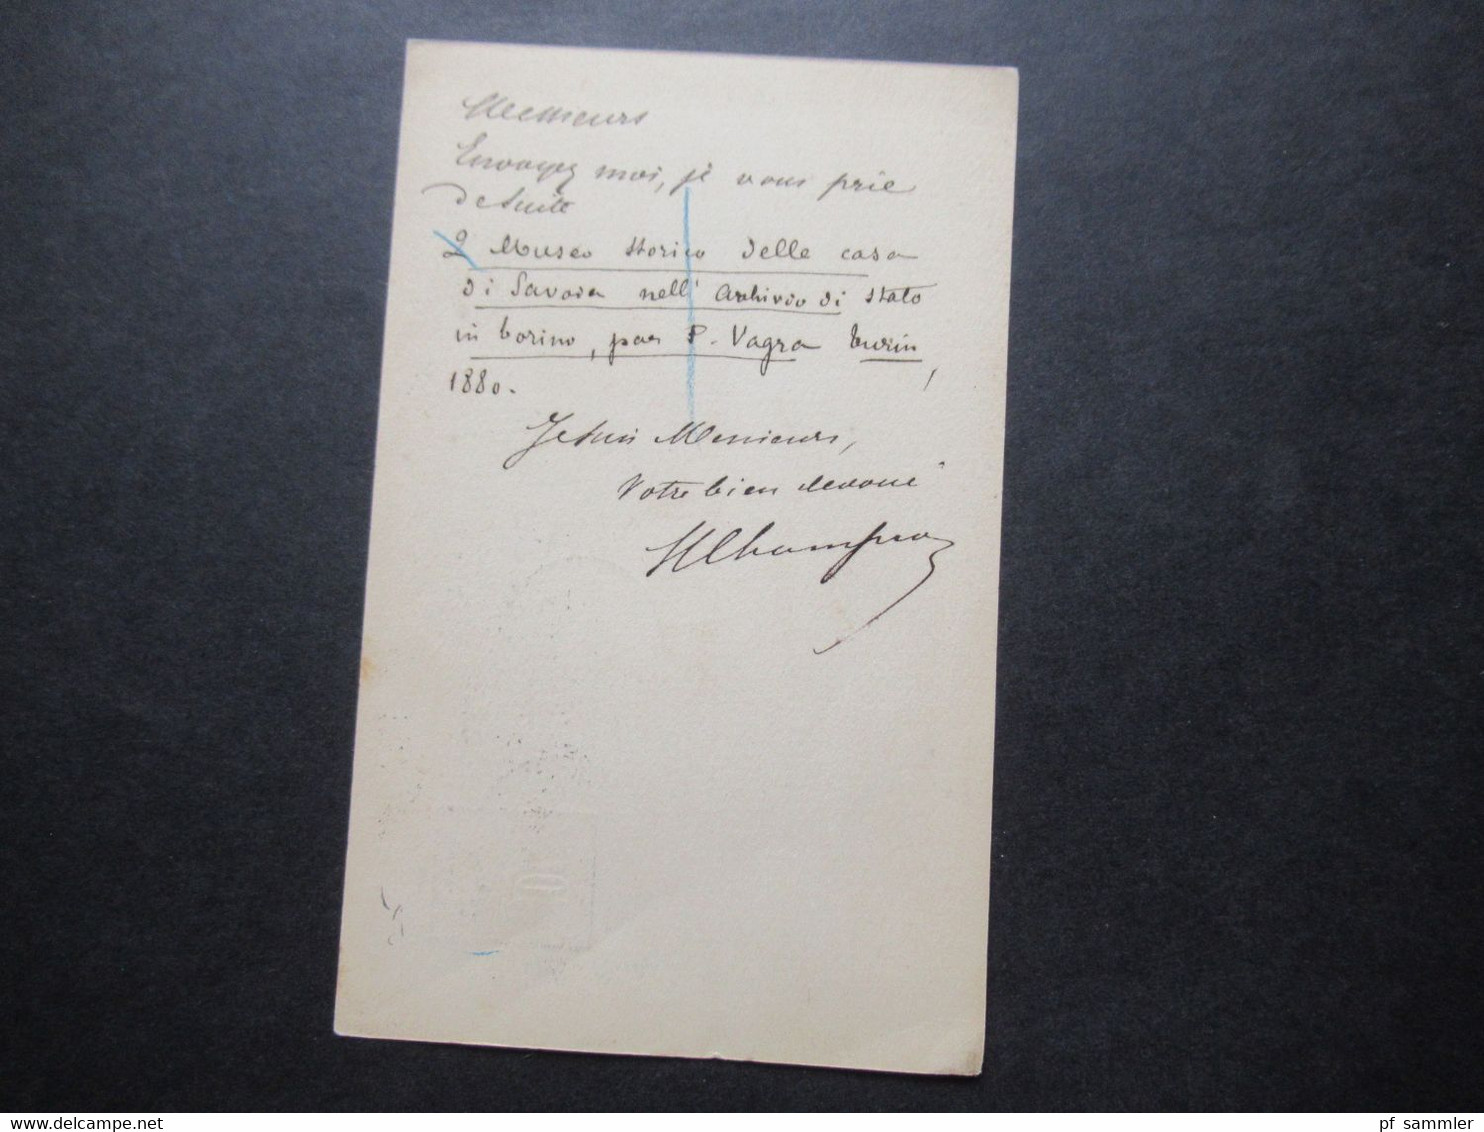 Messieurs
Envoyez moi, je vous prie
de suite
2 Museo storico delle casa
di Savoia nell' Archivio di stato
in torino, par P. Vagra Turin,
1880.
Je suis Messieurs,
Votre bien devoué
HChampion
delcampe.net
pf_sammler